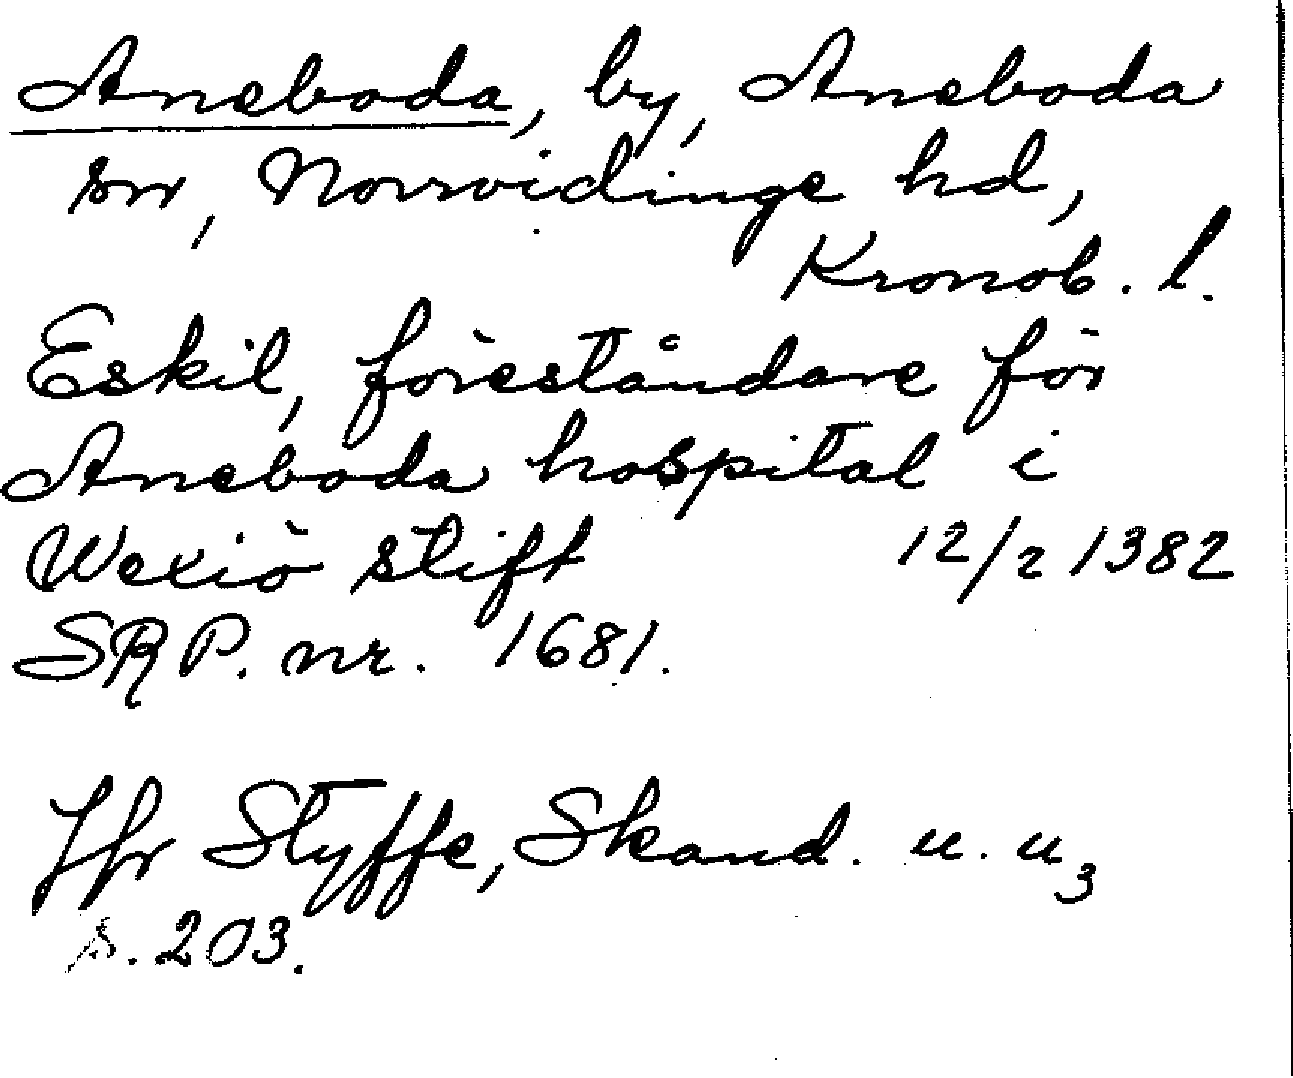 Aneboda, by, Aneboda
sn, Norrvidinge hd,
Kronob. l.
Eskil, föreståndare för
Aneboda hospital i
Wexiö stift 12/2 1382
SRP. nr. 1681.
Jfr Styffe, Skand. u. u3
s. 203.